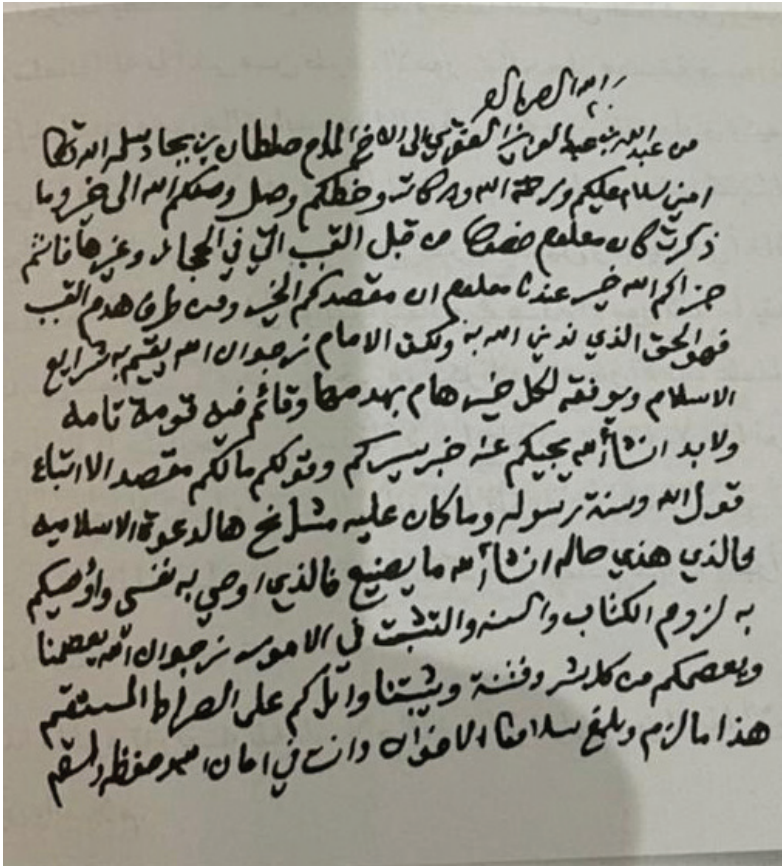 بسم الله الرحمن الرحيم
من عبد الله بن عبد العزيز العنقري الى الاخ المكرم صلطان بن بجاد سلمه الله تعالى
امين سلام عليكم ورحمة الله وبركاته وخطكم وصل وصلكم الله الى خير وما
ذكرت كان معلوم خصوصا من قبل القبب التي في الحجاز وغيرها فانتم
جزاكم الله خير عندنا معلوم ان مقصدكم الخير ومن طرف هدم القبب
فهو الحق الذي ندين الله به ولكن الامام نرجوا ان الله يقيم به شرايع
الاسلام ويوفقه لكل خير هام بهدمها وقائم فيه قومة تامه
ولا بد انشأ الله يجيكم عنه خبر يسركم وقولكم مالكم مقصد الا اتباع
قول الله وسنة رسوله وما كان عليه مشايخ هالدعوة الاسلاميه
فالذي هذي حاله انشأ الله ما يضيع فالذي اوصي به نفسي واوصيكم
به لزوم الكتاب والسنه والتثبت في الامور نرجوا ان الله يعصمنا
ويعصمكم من كل شر وفتنة ويثبتنا واياكم على الصراط المستقيم
هذا ما لزم وبلغ سلامنا الاخوان وانت في امان الله وحفظه والسلام